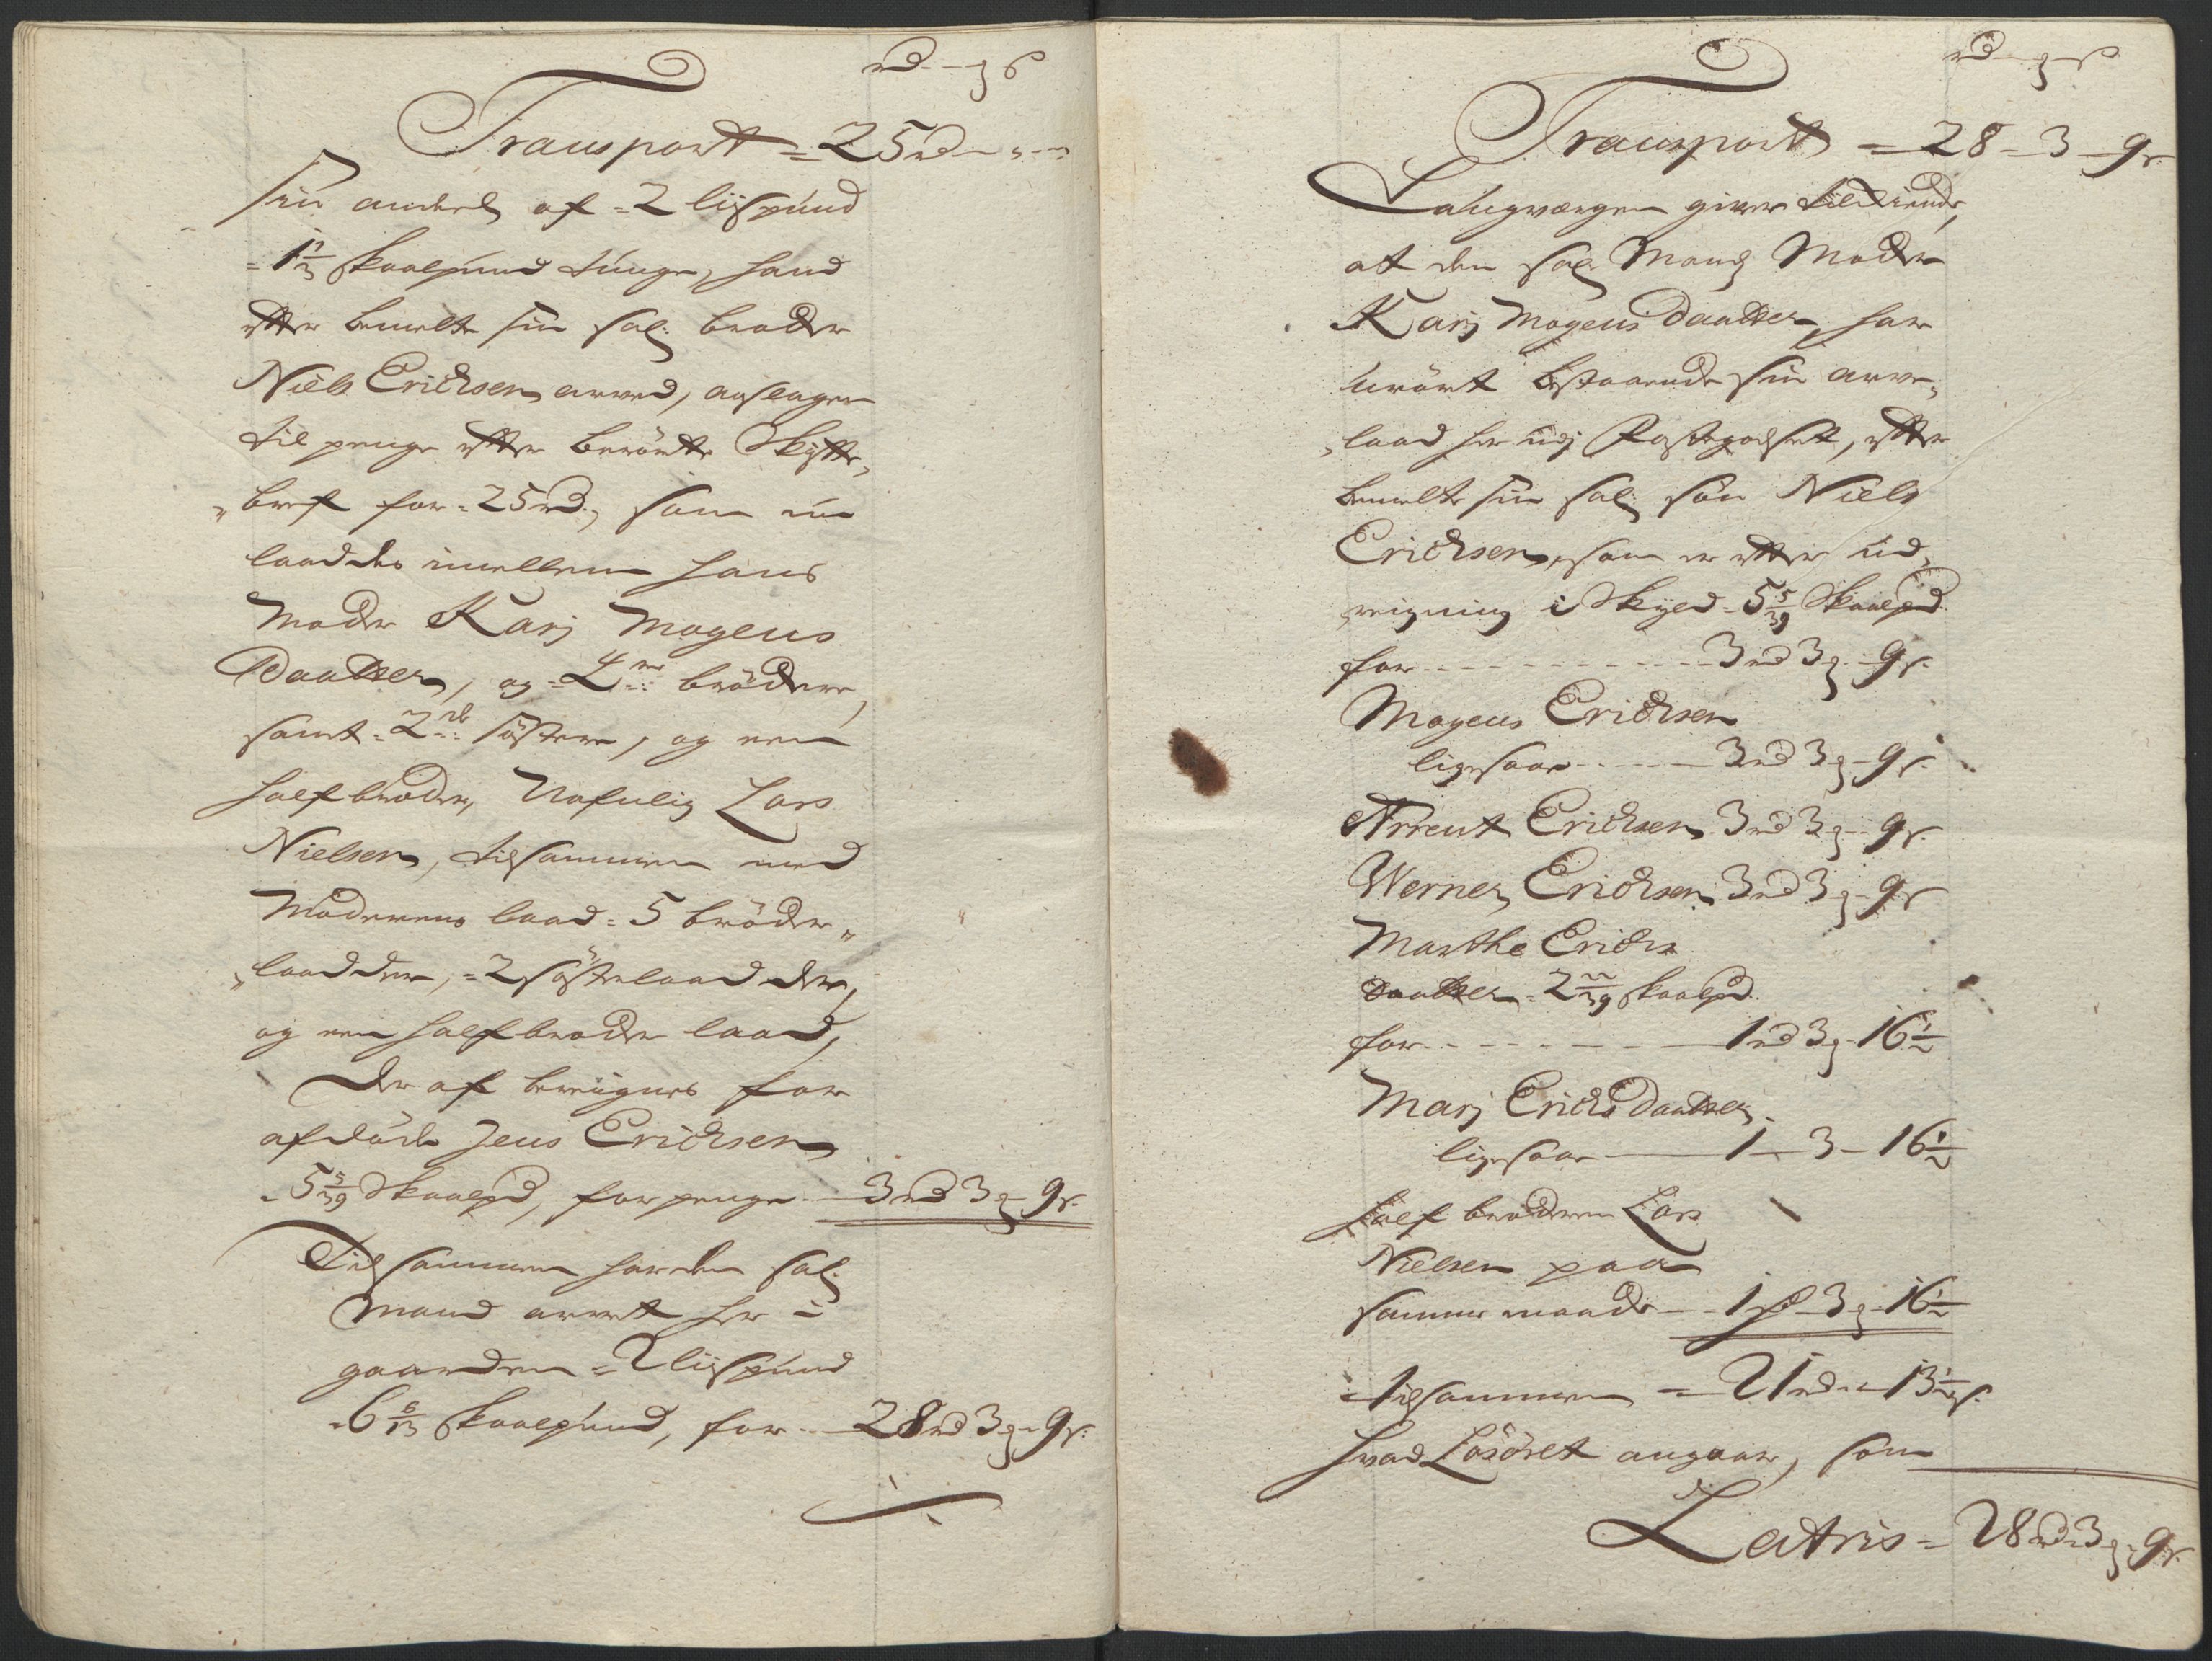 rd - g s
Transport = 25 rd - " - "
sin andeel af = 2 liispund
= 1 1/3 skaalpund tunge, hand
efter bemelte sin sal: broder
Niels Erichsen arved, anslagen
til penge efter berörte Skifte„
„bref for = 25 rd., som nu
laaddes imellem hans
Moder Karj Mogens
Daatter, og = 4re brödre,
samt = 2de söstre, og een
halfbroder, Nafnlig Lars
Nielsen, tilsammen med
Moderens laad = 5 bröder„
„laadder, = 2 söster laadder,
og een halfbroder laad,
Der af bereignes for
afdöde Jens Erichsen
= 5 5/39 Skaalpd, for penge - 3 rd 3 g - 9 s.
Tilsammen har den sal:
Mand arvet her i
gaarden = 2 liispund
= 6 6/13 skaalpund, for - 28 rd 3 g - 9 s.
rd - g - s
Transport = 28 - 3 - 9 s.
Laugværgen giver tilkiende,
at den sal: Mands Moder
Karj Mogens Daatter, har
urört bestaaende sin arve„
„laad her udj Fastegodset, efter
bemelte sin sal: sön Niels
Erichsen, som er efter ud„
„reigning i Skyld = 5 5/39 Skaalpd
for - - - - 3 rd 3 g - 9 s.
Mogens Erichsen
ligesaa - - - 3 rd 3 g - 9 s.
Arrent Erichsen 3 rd 3 g - 9 s.
Werner Erichsen 3 rd 3 g - 9 s
Marthe Erichs
Daatter = 2 22/39 skaalpd.
for - - - - 1 rd 3 g - 16 1/2
Marj Erichs Daatter
ligesaa - 1 - 3 - 16 1/2
Half broderen Lars
Nielsen paa
samme maade - 1 rd 3 g - 16 1/2
tilsammen = 21 rd - " - 13 1/2 s.
Hvad Lösöret angaar, som
Latris = 28 rd 3 g - 9 s.